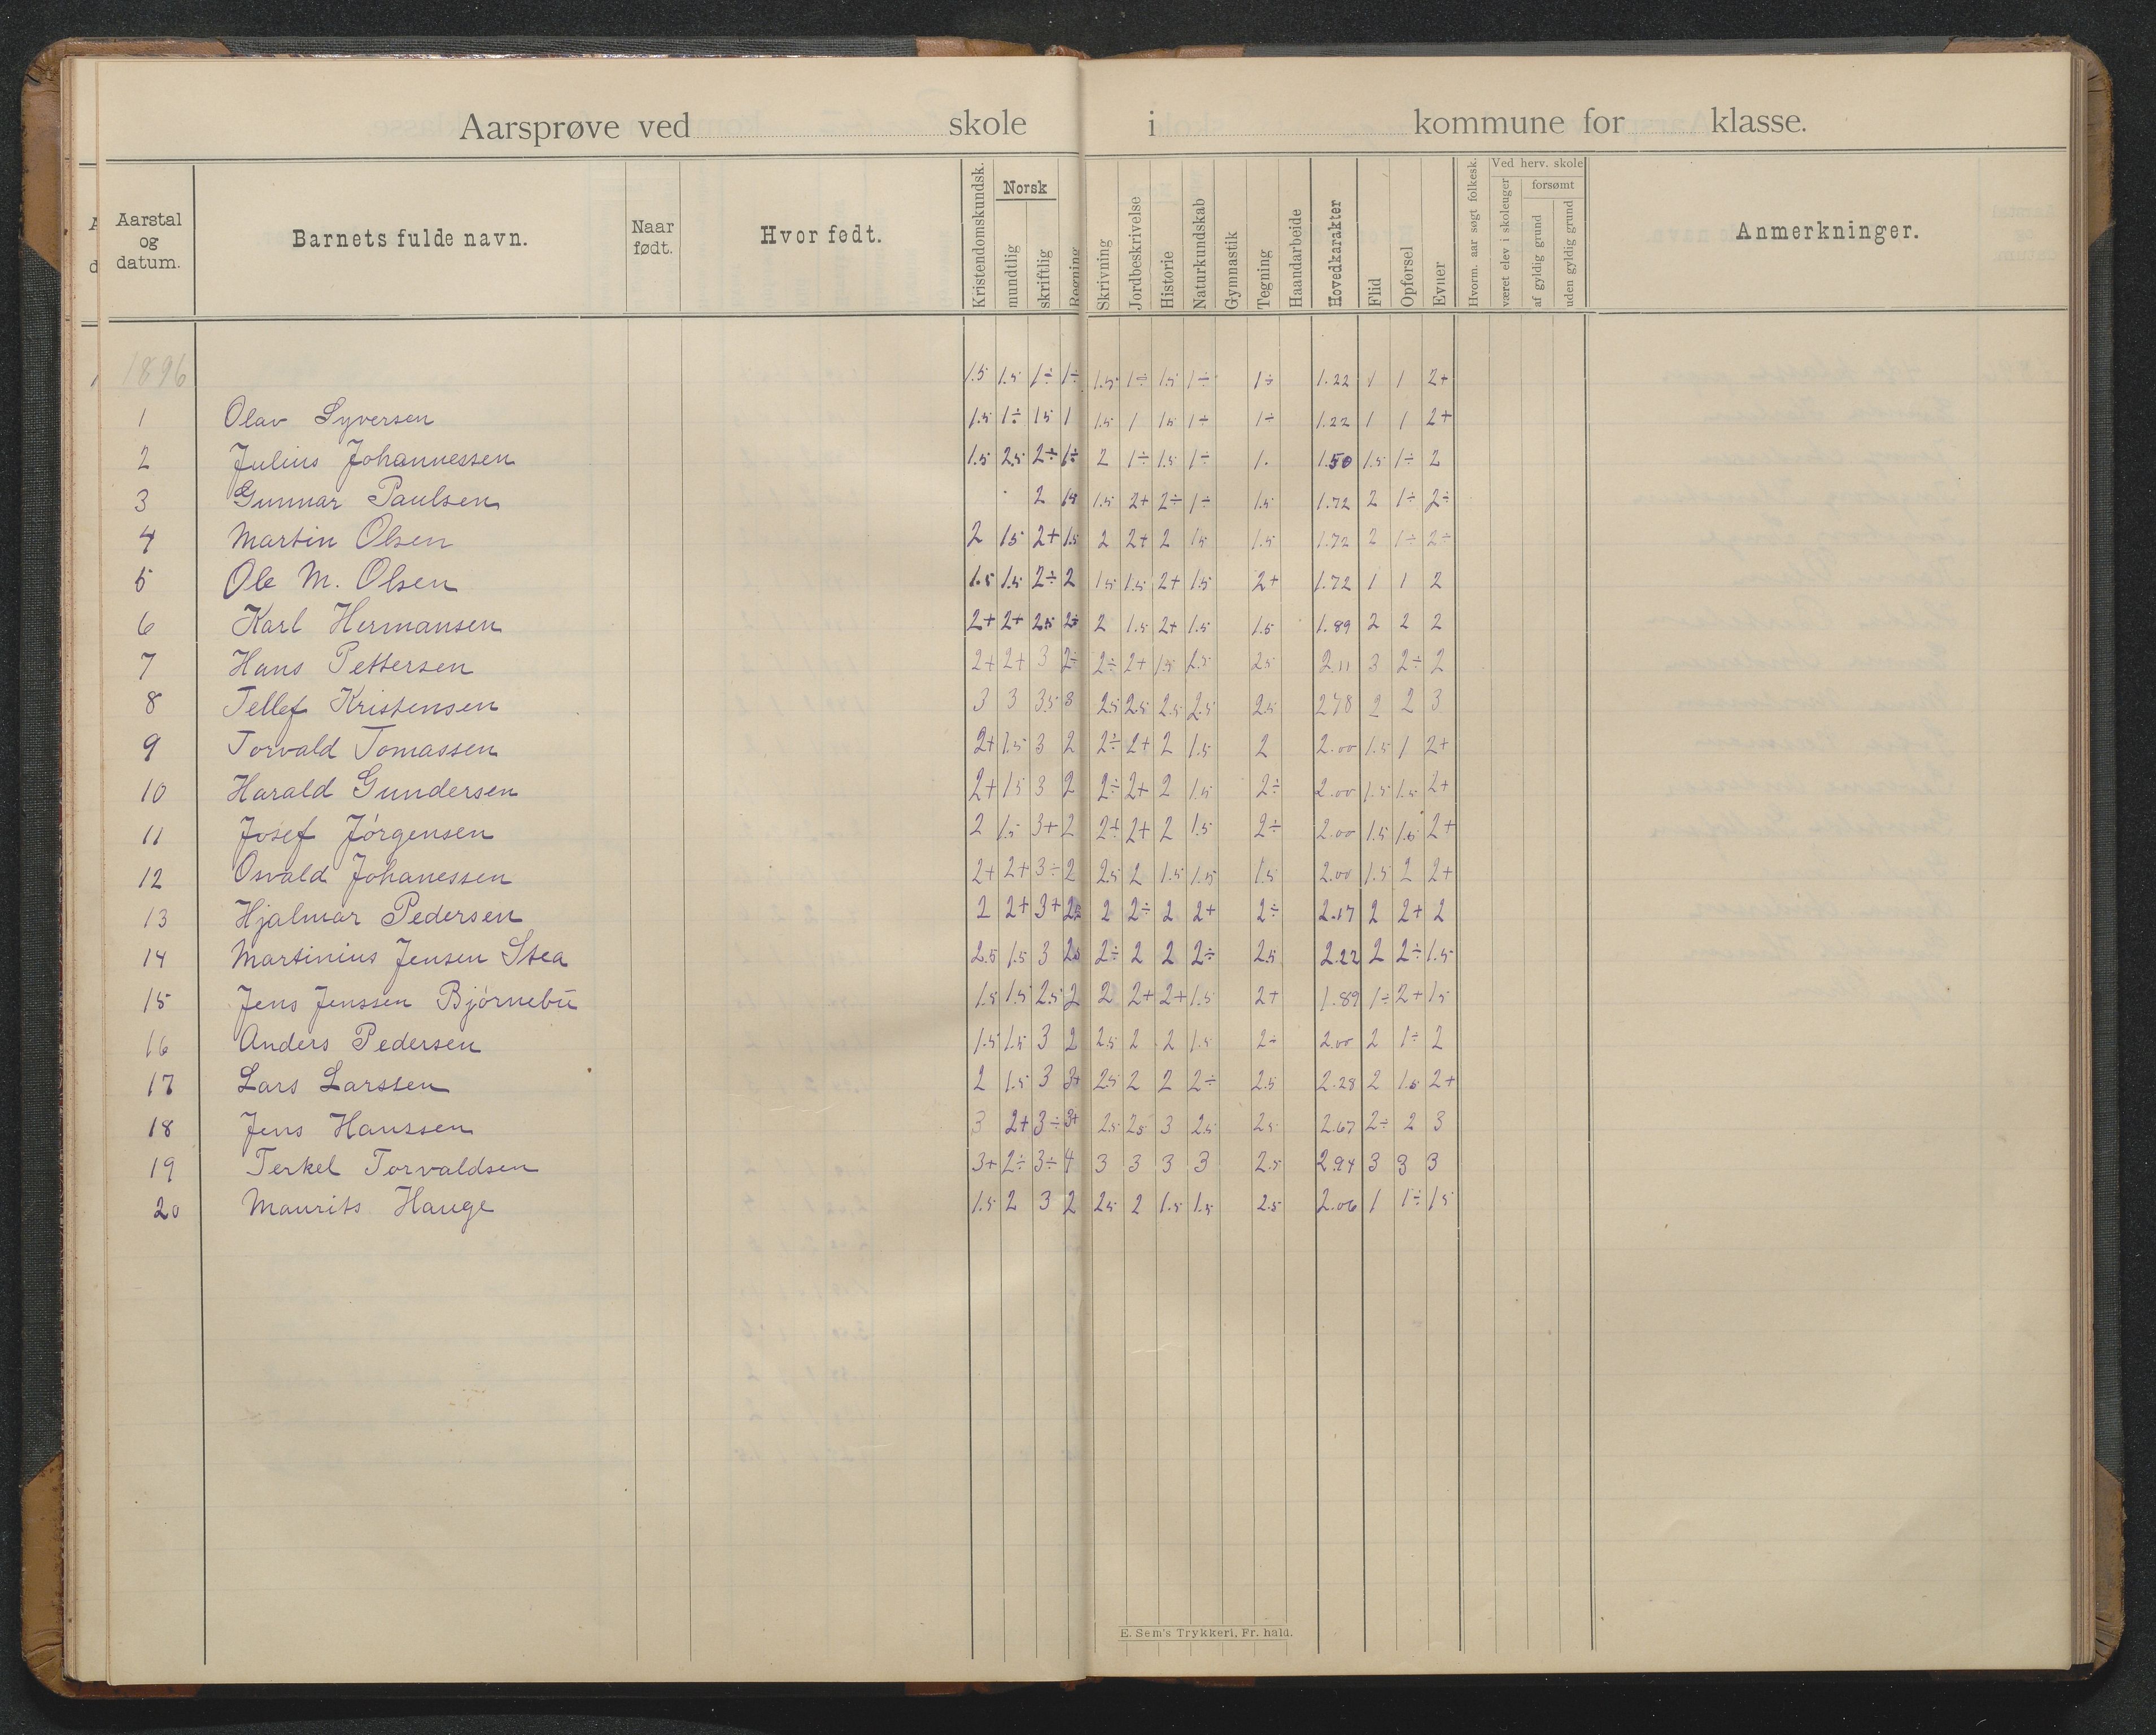 Aarsprøve ved skole i kommune for klasse.
Aarstal og datum. Barnets fulde navn. Naar født. Hvor født. Kristendomskundsk. Norsk mundtlig skriftlig Regning Skrivning Jordbeskrivelse Historie Naturkundskab Gymnastik Tegning Haandarbeide Hovedkarakter Flid Opførsel Evner Hvorm. aar søgt folkesk. Ved herv. skole været elev i skoleuger forsømt af gyldig grund uden gyldig grund Anmerkninger.
1896 1.5 1.5 1÷ 1÷ 1.5 1÷ 1.5 1÷ 1÷ 1.22 1 1 2+
1 Olav Syversen 1.5 1÷ 1.5 1 1.5 1 1.5 1÷ 1÷ 1.22 1 1 2+
2 Julius Johannessen 1.5 2.5 2÷ 1÷ 2 1÷ 1.5 1÷ 1. 1.50 1.5 1÷ 2
3 Gunnar Paulsen 2 1.5 1.5 2+ 2÷ 1÷ 1.5 1.72 2 1÷ 2÷
4 Martin Olsen 2 1.5 2+ 1.5 2 2+ 2 1.5 1.5 1.72 2 1÷ 2÷
5 Ole M. Olsen 1.5 1.5 2÷ 2 1.5 1.5 2+ 1.5 2+ 1.72 1 1 2
6 Karl Hermansen 2+ 2+ 2.5 2÷ 2 1.5 2+ 1.5 1.5 1.89 2 2 2
7 Hans Pettersen 2+ 2+ 3 2÷ 2÷ 2+ 1.5 2.5 2.5 2.11 3 2÷ 2
8 Tellef Kristensen 3 3 3.5 3 2.5 2.5 2.5 2.5 2.5 2.78 2 2 3
9 Torvald Tomassen 2+ 1.5 3 2 2÷ 2+ 2 1.5 2 2.00 1.5 1 2+
10 Harald Gundersen 2+ 1.5 3 2 2÷ 2+ 2 1.5 2÷ 2.00 1.5 1.5 2+
11 Josef Jørgensen 2 1.5 3+ 2 2÷ 2+ 2 1.5 2÷ 2.00 1.5 1.5 2+
12 Osvald Johanessen 2+ 2+ 3÷ 2 2.5 2 1.5 1.5 1.5 2.00 1.5 2 2+
13 Hjalmar Pedersen 2 2+ 3+ 2.5 2 2÷ 2 2+ 2÷ 2.17 2 2+ 2
14 Martinius Jensen Stea 2.5 1.5 3 2.5 2÷ 2 2 2÷ 2.5 2.22 2 2÷ 1.5
15 Jens Jenssen Bjørnebu 1.5 1.5 2.5 2 2 2+ 2+ 1.5 2+ 1.89 1÷ 2+ 1.5
16 Anders Pedersen 1.5 1.5 3 2 2.5 2 2 1.5 2÷ 2.00 2 1÷ 2
17 Lars Larssen 2 1.5 3 3+ 2.5 2 2 2÷ 2.5 2.28 2 1.5 2+
18 Jens Hanssen 3 2+ 3÷ 3+ 2.5 2.5 3 2.5 2.5 2.67 2÷ 2 3
19 Terkel Torvaldsen 3+ 2÷ 3÷ 4 3 3 3 3 2.5 2.94 3 3 3
20 Maurits Hauge 1.5 2 3 2 2.5 2 1.5 1.5 2.5 2.06 1 1÷ 1.5
E. Sem's Trykkeri, Fr. hald.